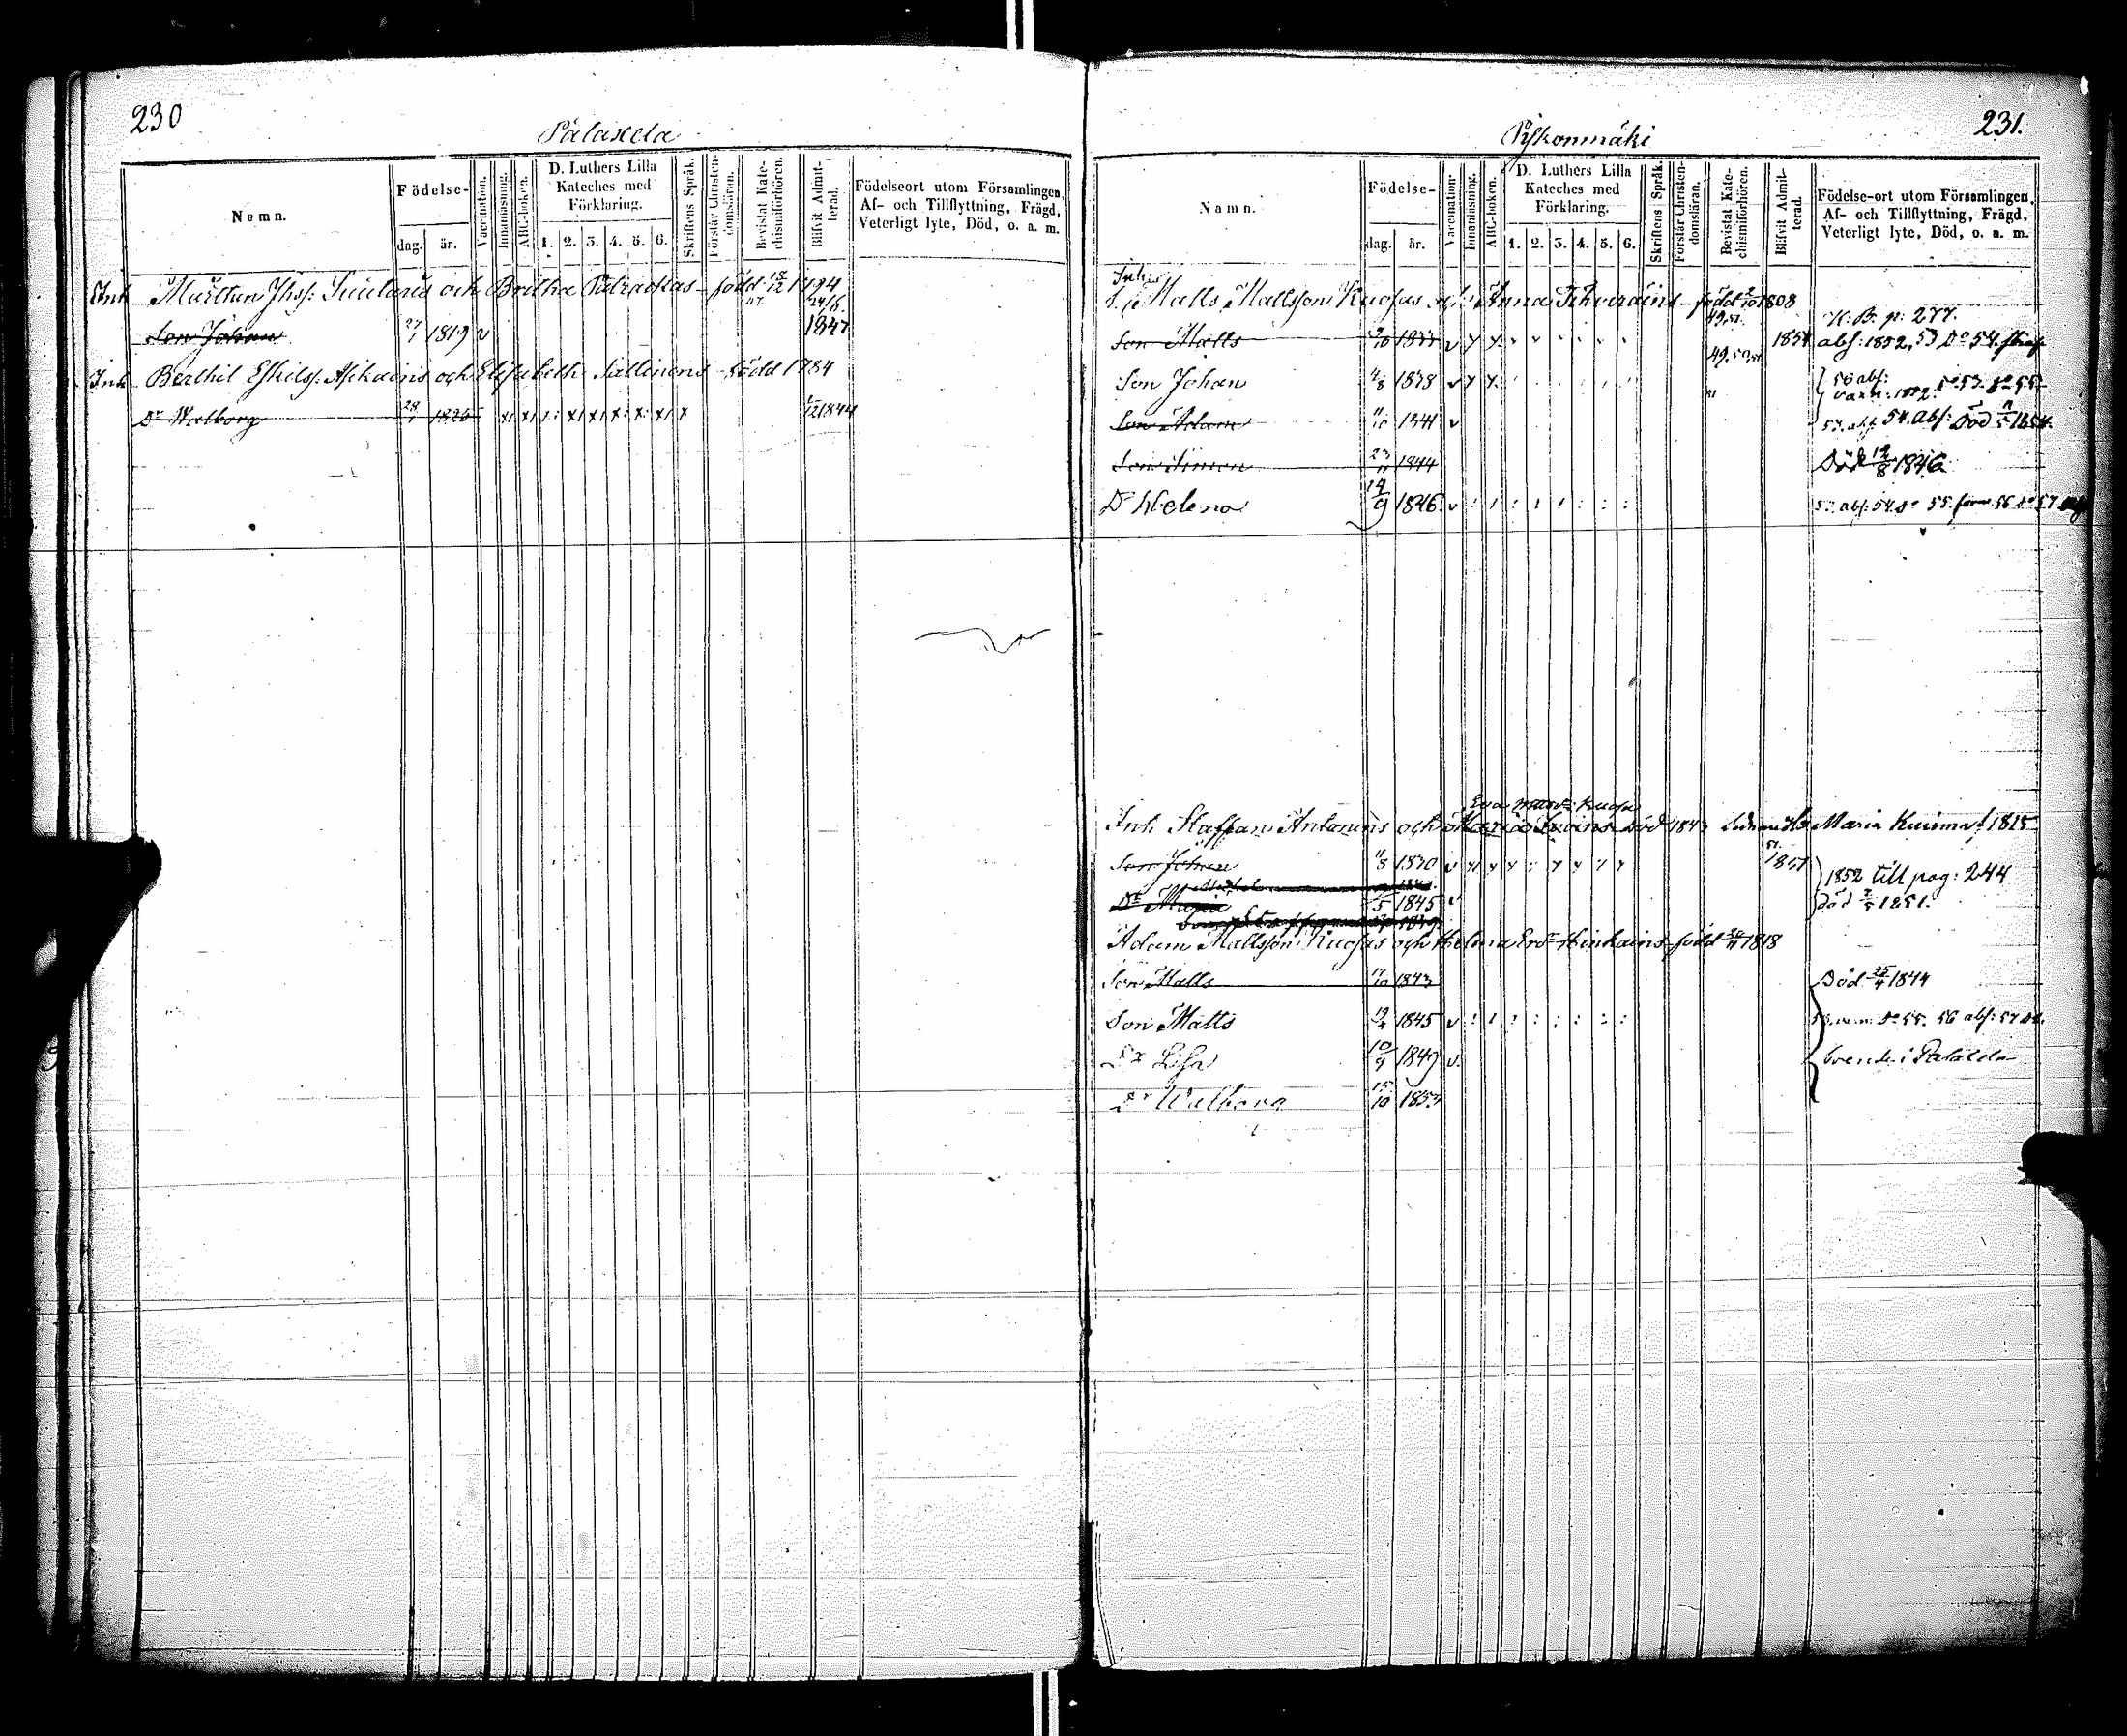 230
Pälaxela
Namn.
Födelse-
dag. år.
Vaccination.
Innanläsning.
ABC-boken.
D. Luthers Lilla Kateches med Förklaring.
1. 2. 3. 4. 5. 6.
Skriftens Språk.
Förstår Christen-domsläran.
Bevistat Kate-chismiförhören.
Blifvit Admit-terad.
Födelseort utom Församlingen, Af- och Tillflyttning, Frägd, Veterligt lyte, Död, o. a. m.
Inh Mårthen Jhsf: och Britha född 15/12 1794
Son Johan 27/1 1819 v 1847
Inh Berthil Eskilsf: Asikains och Elisabeth Sallinens född 1784
Dr Walborg 28/1 1826 1844
231.
Pyykonmäki
Namn.
Födelse-
dag. år.
Vaccination.
Innanläsning.
ABC-boken.
D. Luthers Lilla Kateches med Förklaring.
1. 2. 3. 4. 5. 6.
Skriftens Språk.
Förstår Christen-domsläran.
Bevistat Kate-chismiförhören.
Blifvit Admit-terad.
Födelse-ort utom Församlingen, Af- och Tillflyttning, Frägd, Veterligt lyte, Död, o. a. m.
Inh:
Matts Mattsson Kuosas och Anna född 1808
K: B: p: 277.
Son Matts 1833 v 49.51. 1854 abs: 1852, 53 Do 54.
Son Johan 4/8 1838 v 49.50. 56 abs:
Son Adam 11/10 1841 v 53. abs 54. abs: Död 1854.
Son Simon 23/11 1844 Död 12/8 1846
Dr Helena 14/9 1846 v 53. abs: 54 do 55. 56 do 57
Eva Kuosa
Inh Staffan Antonens och Maria död 1843 Maria Kuisma f 1815
Son Johan 11/8 1830 v 51. 1851 1852 till pag: 244
Dr Maria 5 1845 v Död 1851.
Adam Mattsson Kuosas och Helena Ersdr Hinkains född 30/11 1818
Son Matts 17/10 1843 Död 25/4 1844
Son Matts 1845 v do 55. 56 abs: 57 do.
Dr Lisa 10/9 1849 v. i
Dr Walborg 15/10 1853